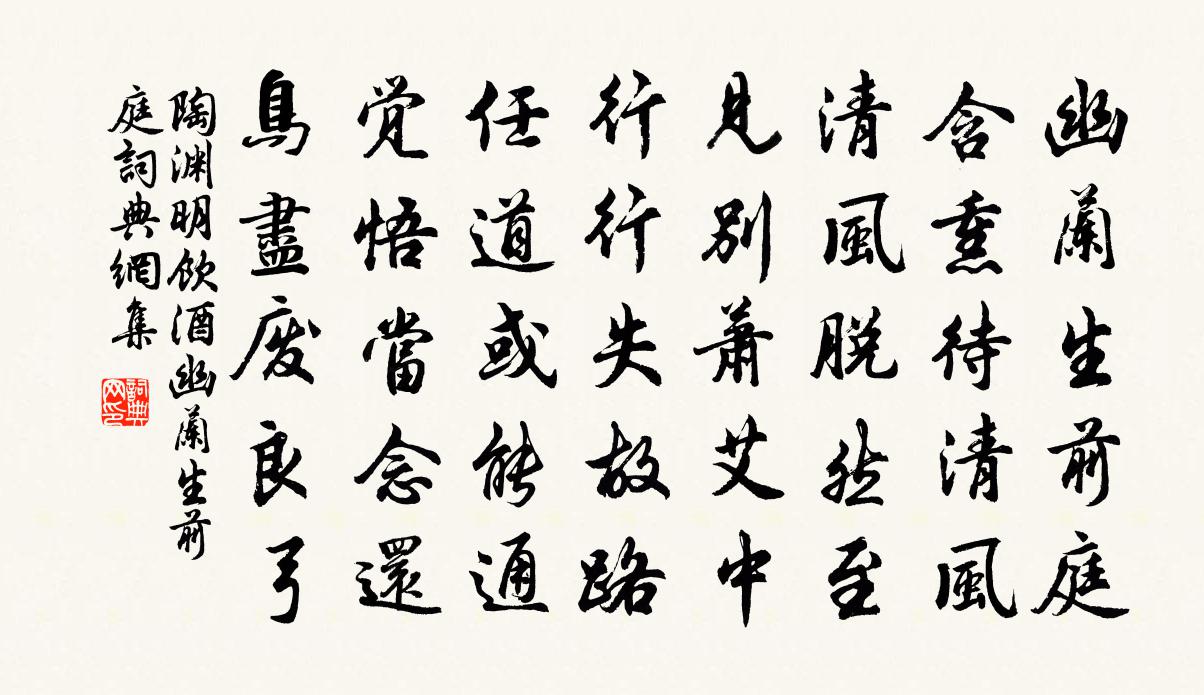 幽蘭生前庭
含熏待清風
清風脱然至
見別蕭艾中
行行失故路
任道或能通
覚悟當念還
鳥盡廢良弓
陶渊明飲酒幽蘭生前
庭詞典網集
詞典网印